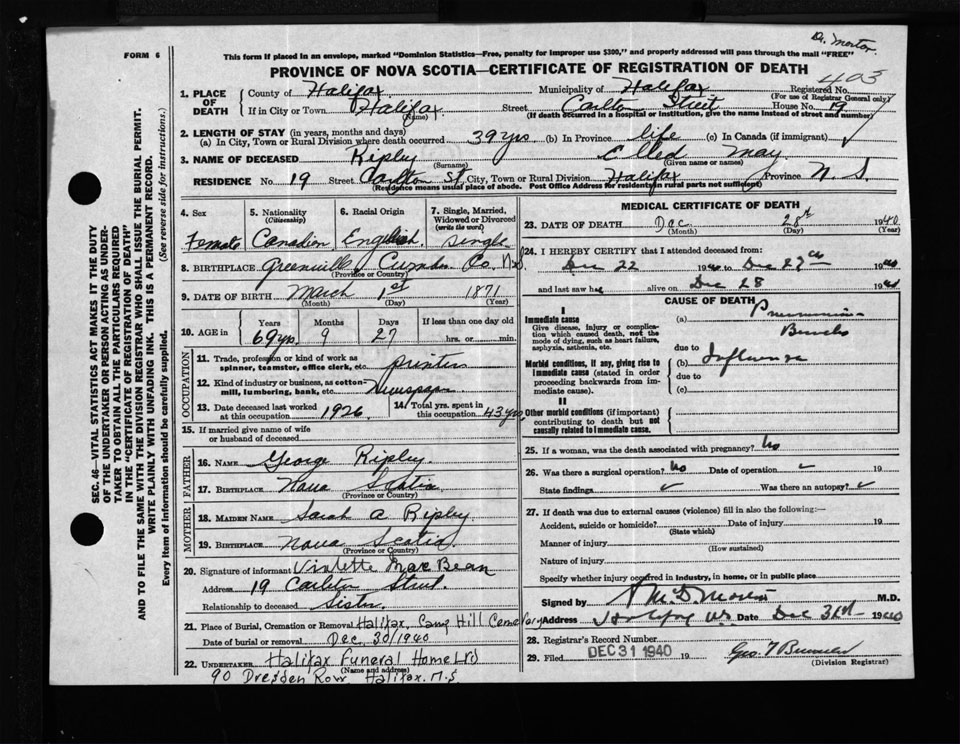 Dr. Morton
FORM 6
This form if placed in an envelope, marked "Dominion Statistics—Free, penalty for improper use $300," and properly addressed will pass through the mail "FREE"
PROVINCE OF NOVA SCOTIA—CERTIFICATE OF REGISTRATION OF DEATH
403
1. PLACE OF DEATH County of Halifax Municipality of Halifax Registered No.
(For use of Registrar General only)
If in City or Town Halifax (Name) Street Carlton Street House No. 19
(If death occurred in a hospital or institution, give the name instead of street and number)
2. LENGTH OF STAY (in years, months and days)
(a) In City, Town or Rural Division where death occurred 39 yrs (b) In Province life (c) In Canada (if immigrant)
3. NAME OF DECEASED Ripley (Surname) May (Given name or names)
RESIDENCE No. 19 Street Carlton St City, Town or Rural Division Halifax Province N. S.
(Residence means usual place of abode. Post Office Address for residents in rural parts not sufficient)
4. Sex Female
5. Nationality (Citizenship) Canadian
6. Racial Origin English
7. Single, Married, Widowed or Divorced (write the word) Single
8. BIRTHPLACE Greenville Co. N.S.
(Province or Country)
9. DATE OF BIRTH March (Month) 1st (Day) 1871 (Year)
10. AGE in Years 69 yrs. Months 9 Days 27 If less than one day old hrs. or min.
OCCUPATION
11. Trade, profession or kind of work as spinner, teamster, office clerk, etc. printer
12. Kind of industry or business, as cotton-mill, lumbering, bank, etc. Newspaper
13. Date deceased last worked at this occupation 1926
14. Total yrs. spent in this occupation 43 yrs
15. If married give name of wife or husband of deceased
FATHER
16. NAME George Ripley
17. BIRTHPLACE Nova Scotia
(Province or Country)
MOTHER
18. MAIDEN NAME Sarah A Ripley
19. BIRTHPLACE Nova Scotia
(Province or Country)
20. Signature of informant Violette MacBean
Address 19 Carleton Street
Relationship to deceased Sister
21. Place of Burial, Cremation or Removal Halifax, Camp Hill Cemetary
Date of burial or removal Dec. 30/1940
22. UNDERTAKER Halifax Funeral Home Ltd
(Name and address)
90 Dresden Row Halifax. N.S
MEDICAL CERTIFICATE OF DEATH
23. DATE OF DEATH Dec (Month) 28th (Day) 1940 (Year)
24. I HEREBY CERTIFY that I attended deceased from:
Dec 22 1940 to Dec 1940
and last saw her alive on Dec 28 1940
CAUSE OF DEATH
I
Immediate cause
Give disease, injury or complication which caused death, not the mode of dying, such as heart failure, asphyxia, asthenia, etc.
(a) Pneumonia
Broncho
due to
Morbid conditions, if any, giving rise to immediate cause (stated in order proceeding backwards from immediate cause).
(b) Influenza
due to
(c)
II
Other morbid conditions (if important) contributing to death but not causally related to immediate cause.
25. If a woman, was the death associated with pregnancy? No
26. Was there a surgical operation? No Date of operation 19
State findings Was there an autopsy?
27. If death was due to external causes (violence) fill in also the following:—
Accident, suicide or homicide? Date of injury 19
(State which)
Manner of injury
(How sustained)
Nature of injury
Specify whether injury occurred in industry, in home, or in public place
Signed by Morton M.D.
Address Halifax N.S. Date Dec 31st 1940
28. Registrar's Record Number
29. Filed DEC 31 1940 19 Geo. T
(Division Registrar)
SEC. 46—VITAL STATISTICS ACT MAKES IT THE DUTY
OF THE UNDERTAKER OR PERSON ACTING AS UNDER-
TAKER TO OBTAIN ALL THE PARTICULARS REQUIRED
IN THE "CERTIFICATE OF REGISTRATION OF DEATH"
AND TO FILE THE SAME WITH THE DIVISION REGISTRAR WHO SHALL ISSUE THE BURIAL PERMIT.
WRITE PLAINLY WITH UNFADING INK. THIS IS A PERMANENT RECORD.
Every item of information should be carefully supplied. (See reverse side for instructions.)